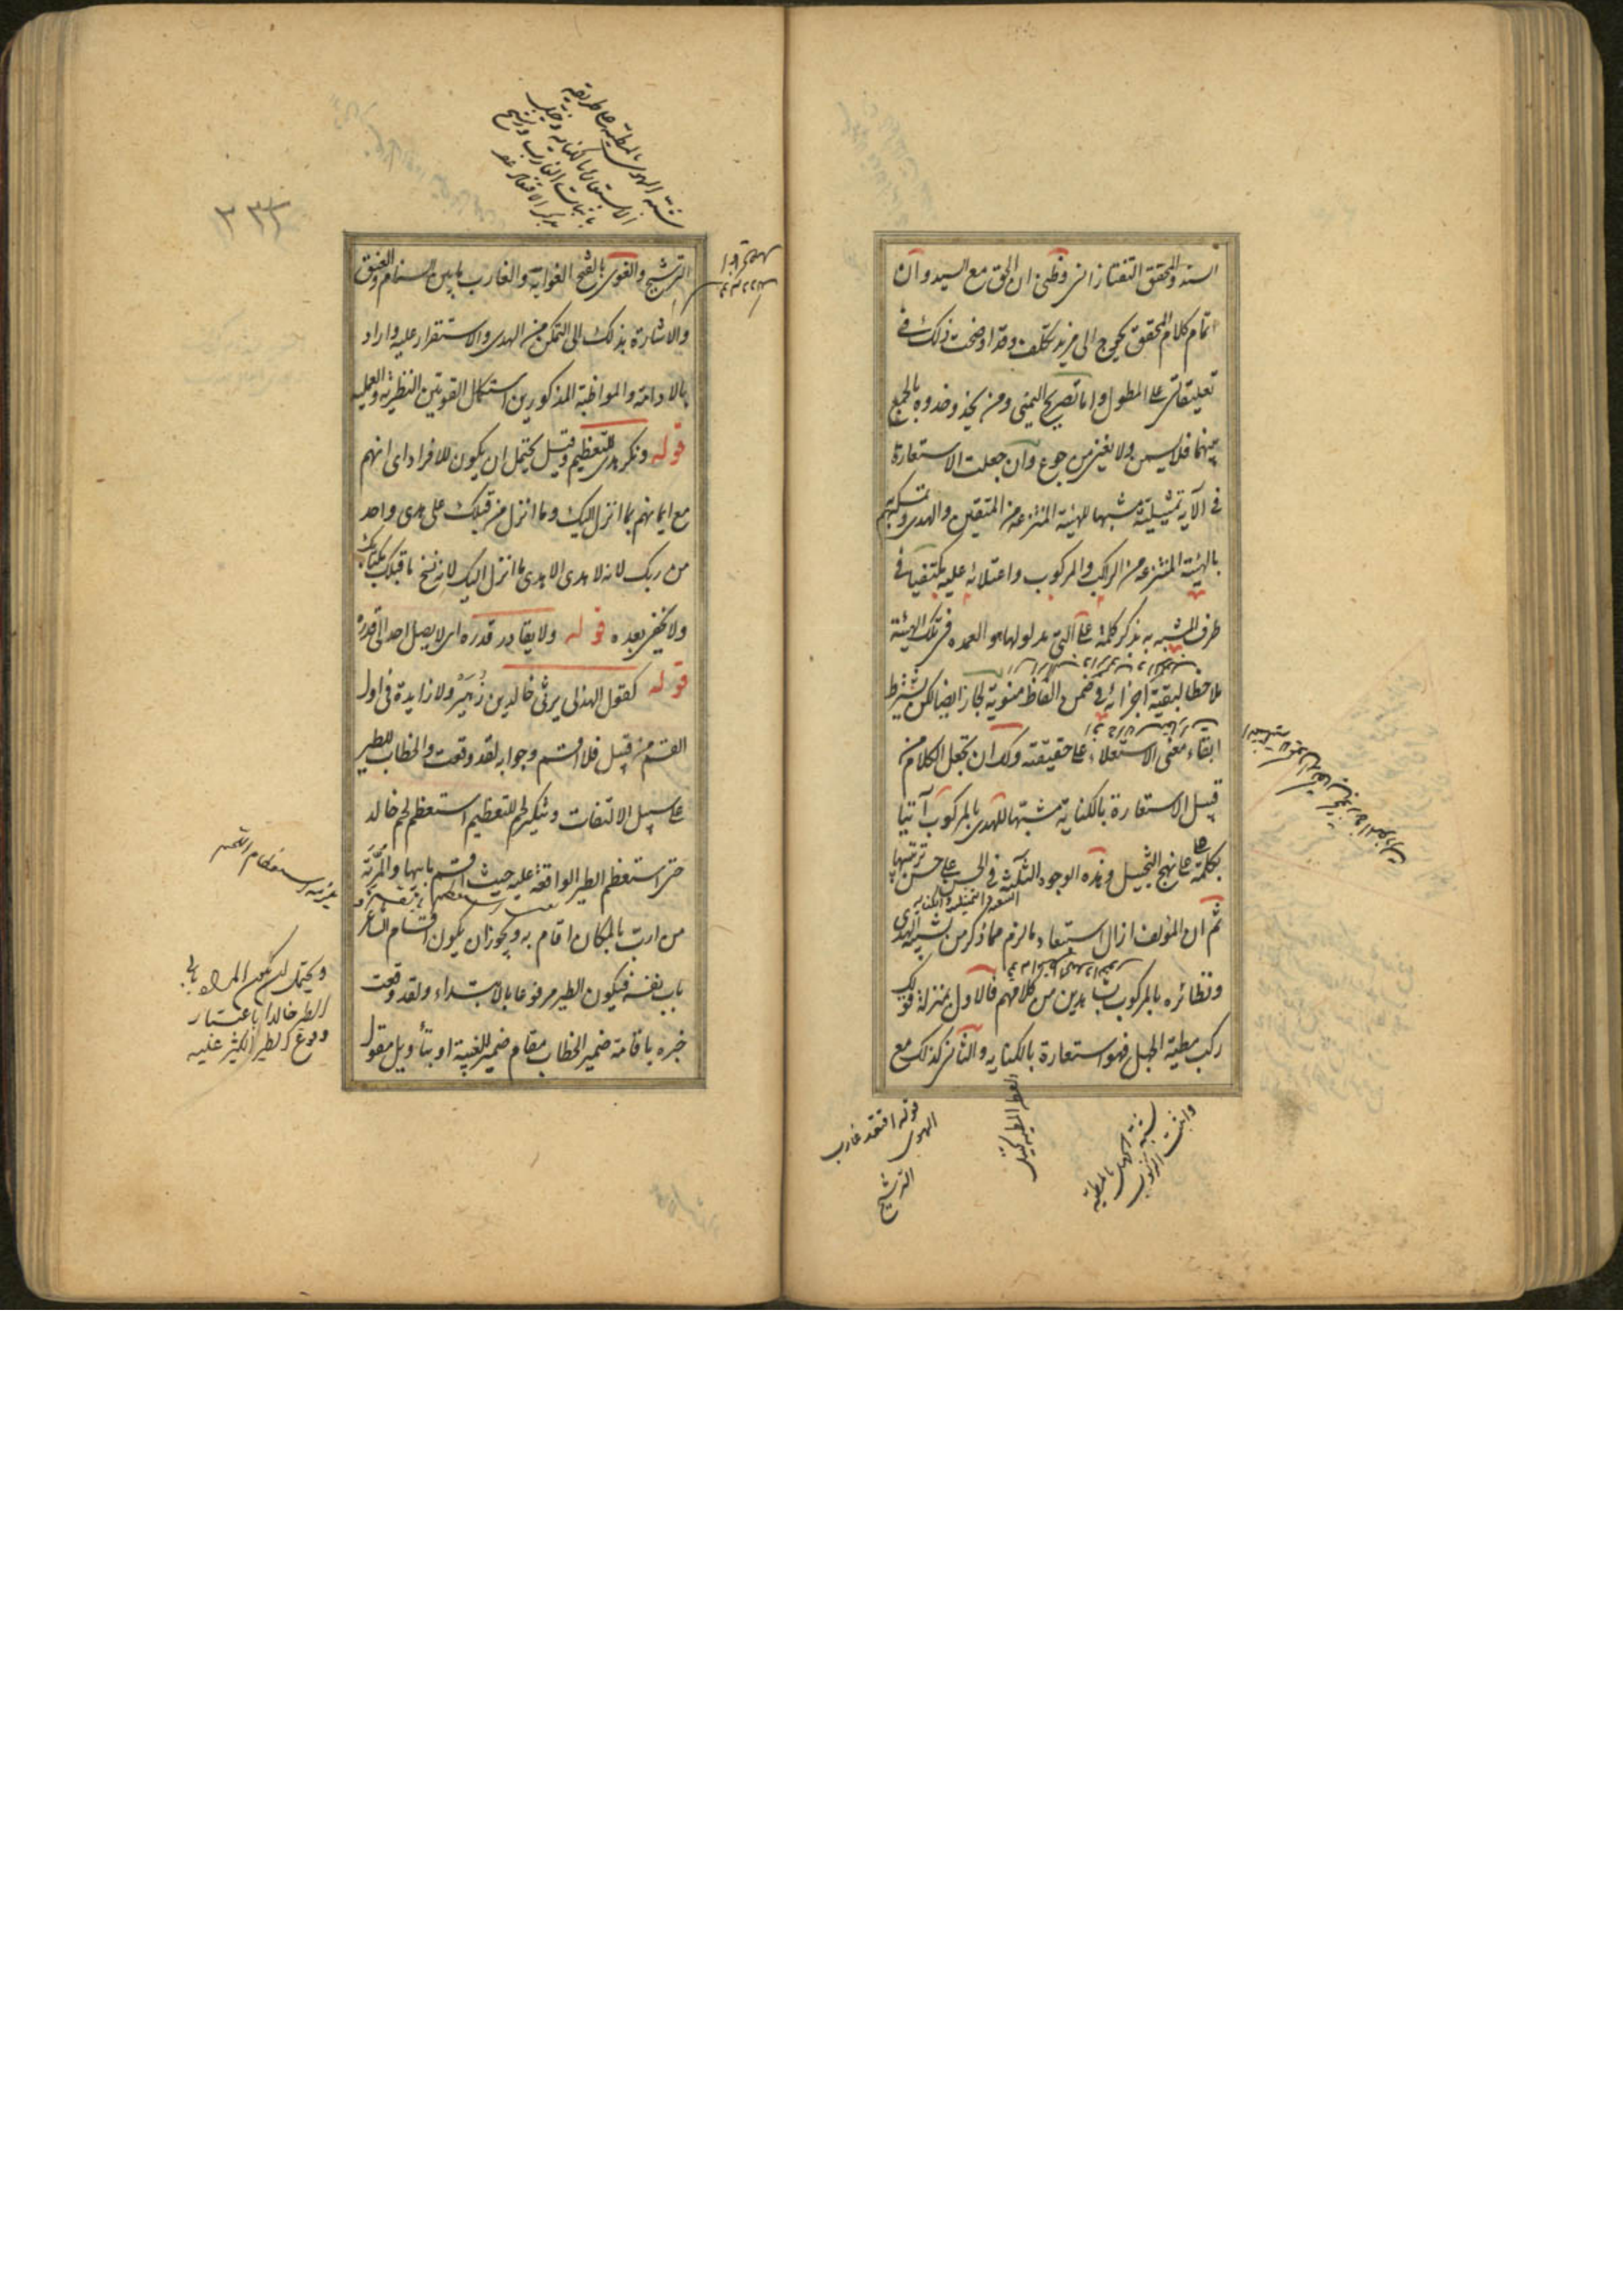 السند والمحقق التفتازانى وظنى ان الحق مع السيد وان
اتمام كلام المحقق يحوج الى مزيد تكلف وقد اوضحت ذلك فى
تعليقاتى على المطول واما تصريح اليمنى ومن يحذو حذوه بالجمع
بينهما فلا يسمن ولا يغنى من جوع وان جعلت الاستعارة
فى الآية تمثيلية مشبها للهيئة المنتزعة من المتقين والهدى وتمسكهم به
بالهيئة المنتزعة من الراكب والمركوب واعتلائه عليه مكتفيا فى
طرف المشبه به بذكر كلمة على التى مدلولها هو العمدة فى تلك الهيئة
ملاحظا لبقية اجزائه فى ضمن الفاظ منوية لجاز ايضا لكن بشرط
ابقاء معنى الاستعلاء على حقيقته ولك ان تجعل الكلام من
قبيل الاستعارة بالكناية مشبها للهدى بالمركوب آتيا
بكلمة على على نهج التخييل وهذه الوجوه الثلثة فى الحسن على حسن ترتيبها
ثم ان المؤلف ازال استبعاد ما لزم مما ذكر من تشبيه الهدى
ونظائره بالمركوب بشاهدين من كلامهم فالاول بمنزلة قولك
ركب مطية الجهل فهو استعارة بالكناية والثانى كذلك مع
شبه الجهل بالمطية
واثبت الركوب
قوله اقتعد غارب
الهوى
الترشيح
شبه الهوى بالمطية على طريقة
الاستعارة بالكناية وخيل
باثبات الغارب ورشح
بذكر الاقتعاد
الترشيح والغوى بالفتح الغواية والغارب ما بين السنام والعنق
والاشارة بذلك الى التمكن من الهدى والاستقرار عليه واراد
بالادامة والمواظبة المذكورين استكمال القوتين النظرية والعملية
قوله ونكر هدى للتعظيم وقيل يحتمل ان يكون للافراد اى انهم
مع ايمانهم بما انزل اليك وما انزل من قبلك على هدى واحد
من ربك لانه لا هدى الا هدى ما انزل اليك لانه نسخ ما قبلك بكتابك
ولا يخفى بعده قوله ولا يقادر قدره اى لا يصل احد الى قدره
قوله كقول الهذلى يرثى خالد بن زُهَيْر ولا زايدة فى اول
القسم من قبيل فلا اقسم وجوابه لقد وقعت والخطاب للطير
على سبيل الالتفات وتنكير لحم للتعظيم استعظم لحم خالد
حتى استعظم الطير الواقعة عليه حيث اقسم بابيها والمُرِبَّة
من ارب بالمكان اقام به ويجوز ان يكون اقسام الشاعر
باب نفسه فيكون الطير مرفوعا بالابتداء ولقد وقعت
خبره باقامة ضمير الخطاب مقام ضمير الغيبة او بتأويل مقول
استعظام اللحم
ويحتمل ان يكون المراد بابى
الطير خالدا باعتبار
وقوع الطير الكثير عليه